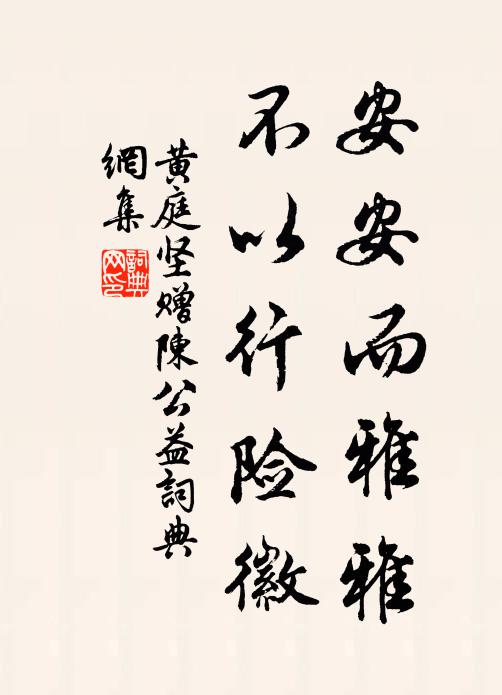 安安而雅雅
不以行险徽
黄庭坚赠陳公益詞典
網集
詞典网印